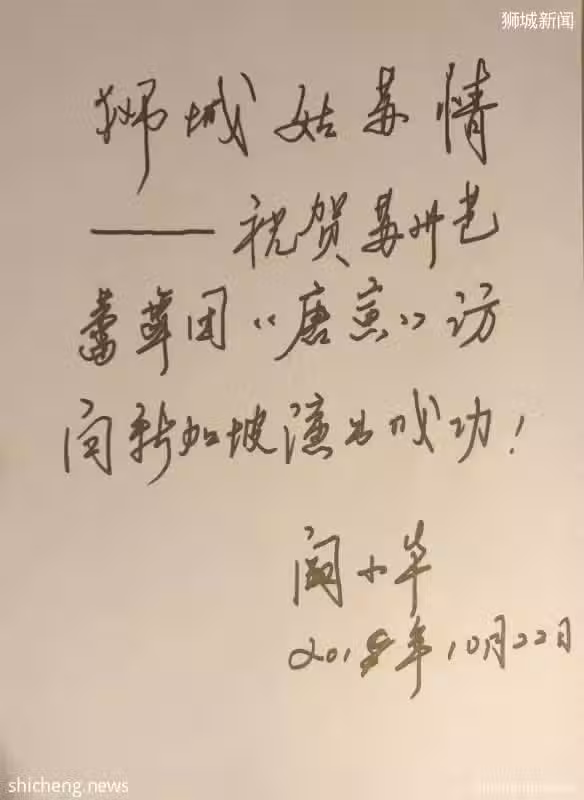 狮城新闻
狮城姑苏情
——祝贺苏州芭
蕾舞团《唐寅》访
问新加坡演出成功！
阎小华
2018年10月22日
shicheng.news